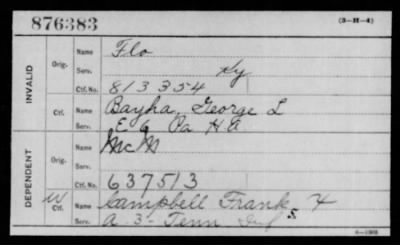 876383 (3-H-4)
INVALID
Orig. Name Flo
Serv. Hy
Ctf. No. 813354
Ctf. Name Bayha, George L
Serv. E 6 Pa H A
DEPENDENT
Orig. Name McM
Serv.
Ctf. No. 637513
W Ctf. Name Campbell Frank S. H
Serv. A. 3 - Tenn Inf